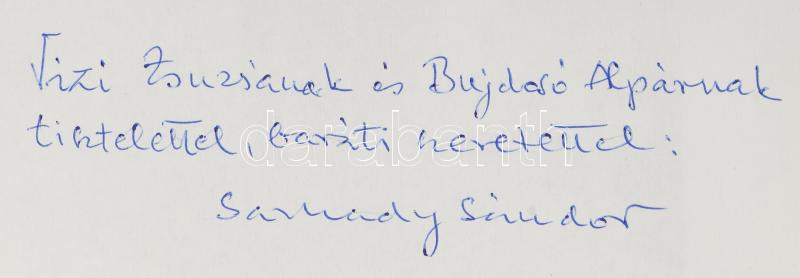 Vizi Zsuzsának és Bujdosó Alpárnak
tisztelettel, baráti szeretettel:
darabanth
Sarkady Sándor